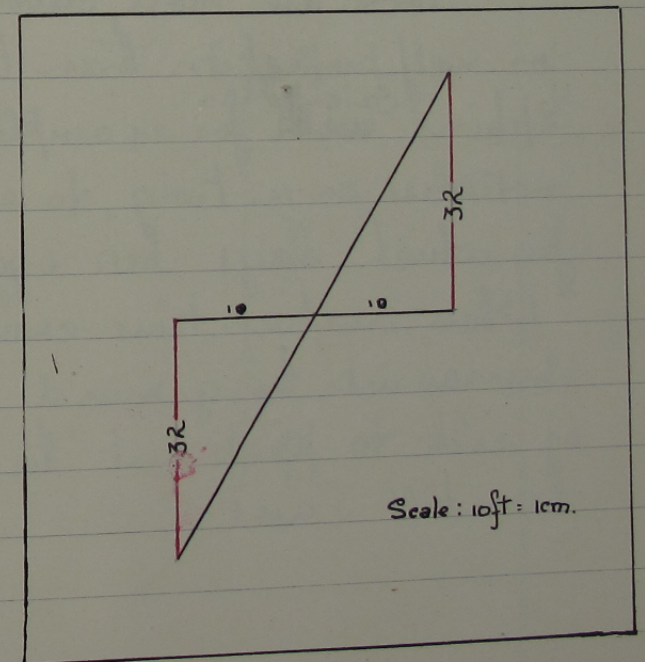 32
10 10
32
Scale: 10ft = 1cm.